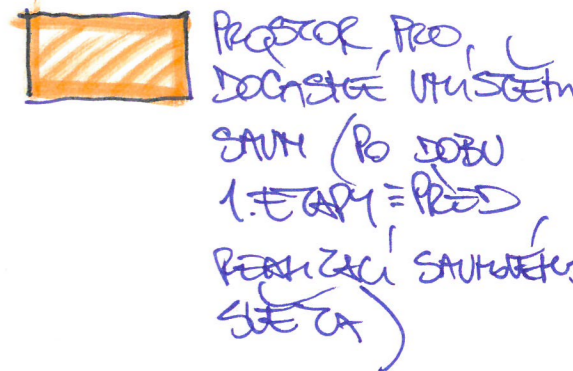 PROSTOR PRO
DOČASNÉ UMÍSTĚNÍ
SAUN (PO DOBU
1. ETAPY = PŘED
REALIZACÍ SAUNOVÉHO
SVĚTA)